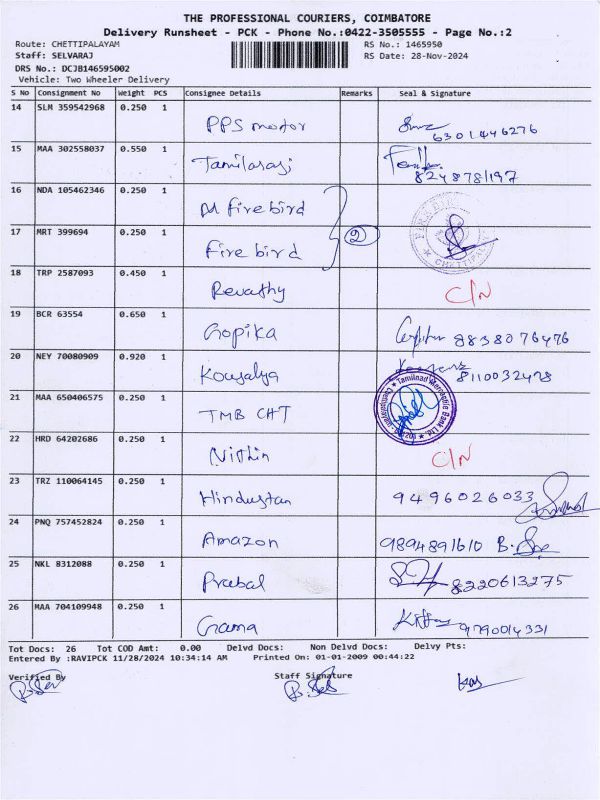 THE PROFESSIONAL COURIERS, COIMBATORE
Delivery Runsheet - PCK - Phone No.:0422-3505555 - Page No.:2
Route: CHETTIPALAYAM RS No.: 1465950
Staff: SELVARAJ RS Date: 28-Nov-2024
DRS No.: DCJB146595002
Vehicle: Two Wheeler Delivery
S No Consignment No Weight PCS Consignee Details Remarks Seal & Signature
14 SLM 359542968 0.250 1 PPS motor 6301446276
15 MAA 302558037 0.550 1 Tamilarasi 8248781197
16 NDA 105462346 0.250 1 M firebird
17 MRT 399694 0.250 1 Fire bird 2
18 TRP 2587093 0.450 1 Revathy C/N
19 BCR 63554 0.650 1 Gopika 8838076476
20 NEY 70080909 0.920 1 Kousalya 8110032478
21 MAA 650406575 0.250 1 TMB CHT Tamilnad Mercantile Bank Ltd.
22 HRD 64202686 0.250 1 Nithin C/N
23 TRZ 110064145 0.250 1 Hindustan 9496026033
24 PNQ 757452824 0.250 1 Amazon 9894891610
25 NKL 8312088 0.250 1 Prabal 8220613275
26 MAA 704109948 0.250 1 Gama 9790014331
Tot Docs: 26 Tot COD Amt: 0.00 Delvd Docs: Non Delvd Docs: Delvy Pts:
Entered By :RAVIPCK 11/28/2024 10:34:14 AM Printed On: 01-01-2009 00:44:22
Verified By Staff Signature